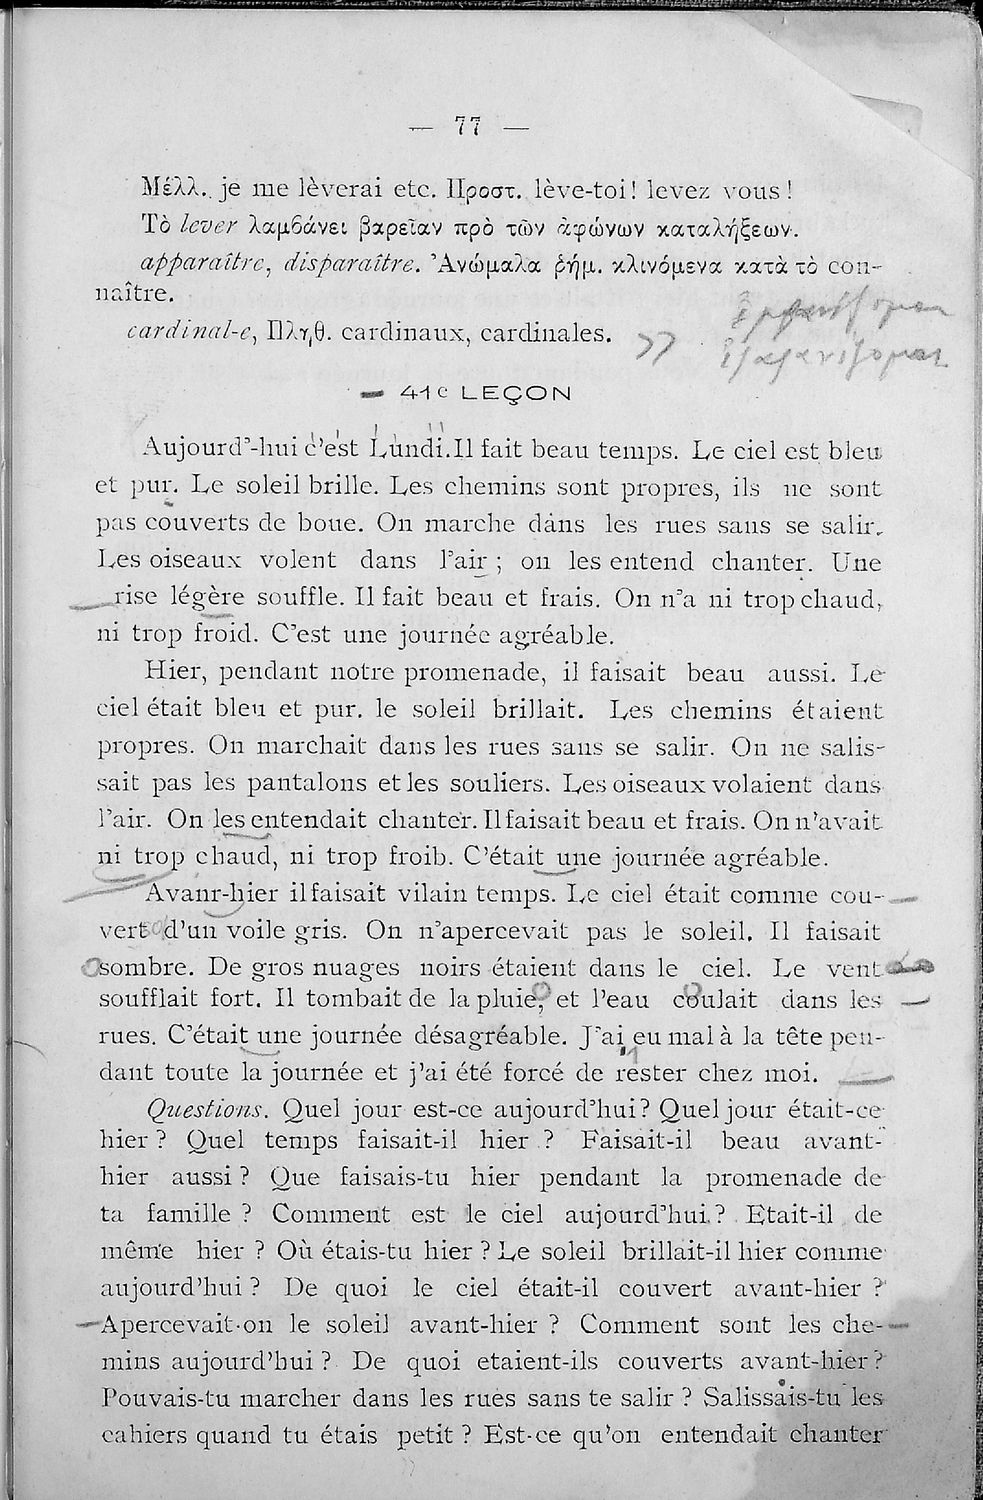 — 77 —
Μέλλ. je me lèverai etc. Προστ. lève-toi! levez vous!
Τὸ lever λαμβάνει βαρεῖαν πρὸ τῶν ἀφώνων καταλήξεων.
apparaître, disparaître. Ἀνώμαλα ῥήμ. κλινόμενα κατὰ τὸ con-
naître.
cardinal-e, Πληθ. cardinaux, cardinales.
41e LEÇON
Aujourd'-hui c'est Lundi. Il fait beau temps. Le ciel est bleu
et pur. Le soleil brille. Les chemins sont propres, ils ne sont
pas couverts de boue. On marche dans les rues sans se salir.
Les oiseaux volent dans l'air ; on les entend chanter. Une
rise légère souffle. Il fait beau et frais. On n'a ni trop chaud,
ni trop froid. C'est une journée agréable.
Hier, pendant notre promenade, il faisait beau aussi. Le
ciel était bleu et pur. le soleil brillait. Les chemins étaient
propres. On marchait dans les rues sans se salir. On ne salis-
sait pas les pantalons et les souliers. Les oiseaux volaient dans
l'air. On les entendait chanter. Il faisait beau et frais. On n'avait
ni trop chaud, ni trop froib. C'était une journée agréable.
Avanr-hier il faisait vilain temps. Le ciel était comme cou-
vert d'un voile gris. On n'apercevait pas le soleil. Il faisait
sombre. De gros nuages noirs étaient dans le ciel. Le vent
soufflait fort. Il tombait de la pluie, et l'eau coulait dans les
rues. C'était une journée désagréable. J'ai eu mal à la tête pen-
dant toute la journée et j'ai été forcé de rester chez moi.
Questions. Quel jour est-ce aujourd'hui? Quel jour était-ce
hier ? Quel temps faisait-il hier ? Faisait-il beau avant-
hier aussi ? Que faisais-tu hier pendant la promenade de
ta famille ? Comment est le ciel aujourd'hui ? Etait-il de
même hier ? Où étais-tu hier ? Le soleil brillait-il hier comme
aujourd'hui ? De quoi le ciel était-il couvert avant-hier ?
Apercevait-on le soleil avant-hier ? Comment sont les che-
mins aujourd'hui ? De quoi etaient-ils couverts avant-hier ?
Pouvais-tu marcher dans les rues sans te salir ? Salissais-tu les
cahiers quand tu étais petit ? Est-ce qu'on entendait chanter